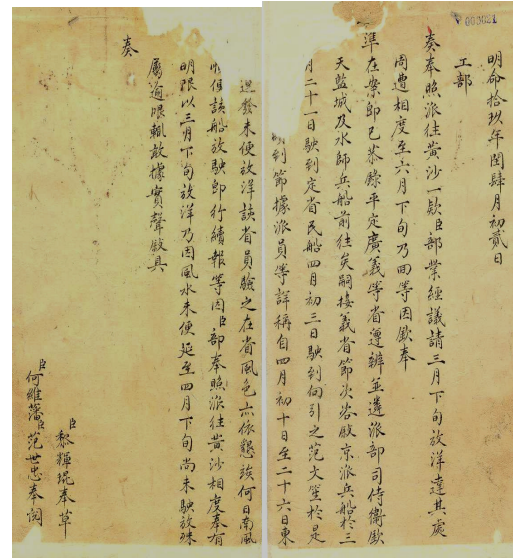 000021
明命拾玖年閏肆月初貳日
工部
奏奉照派往黃沙一款臣部業經議請三月下旬放洋達其處
周遭相度至六月下旬乃回等因欽奉
準在案即已恭錄平定廣義等省遵辦並遴派部司侍衛欽
天監城及水師兵船前往矣嗣接義省節次咨敘京派兵船於三
月二十一日駛到定省民船四月初三日駛到
到節據派員等詳稱自四月初十日至二十六日東
迅發未便放洋該省員驗之在省風色亦依懇該何日南風
順但該船放駛即行續報等因臣部奉照派往黃沙相度奉有
明限以三月下旬放洋乃因風水未便延至四月下旬尚未駛放殊
屬逾限輒敢據實聲敘具
奏
臣黎輝琨奉草
臣何維藩臣范世忠奉閱